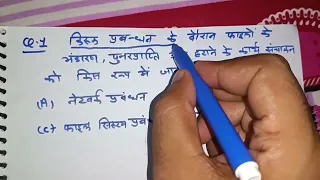 Q.1 डिस्क प्रबन्धन के दौरान फाइलों के
भंडारण, पुनरप्राप्ति हटाने के कार्य संचालन
को किस रूप में जा
(A) नेटवर्क प्रबंधन
(C) फाइल सिस्टम प्रबं